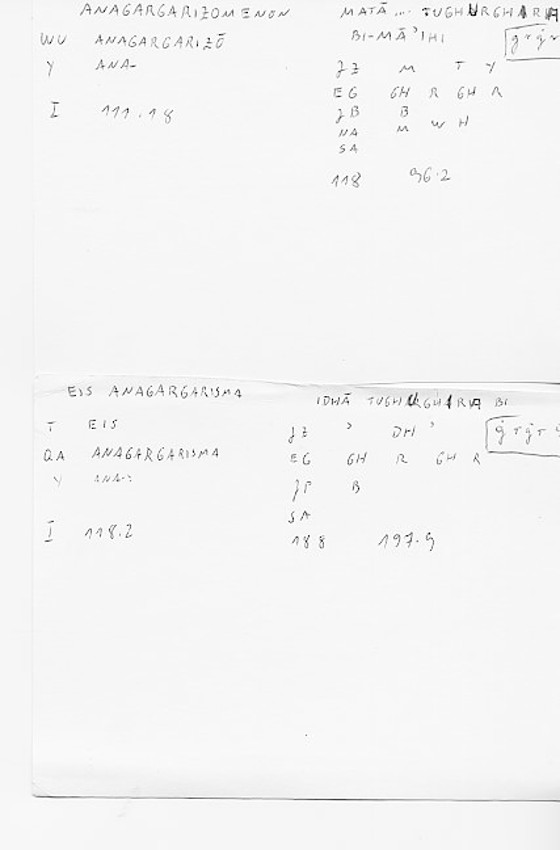 ANAGARGARIZOMENON MATĀ ... TUGHURGHIRA
WU ANAGARGARIZŌ BI-MĀʾIHI
Y ANA- JZ M T Y
EG GH R GH R
I 111.18 JB B
NA M W H
SA
118 96.2
EIS ANAGARGARISMA IDHĀ TUGHURGHIRA BI
T EIS JZ ʾ DH ʾ
QA ANAGARGARISMA EG GH R GH R
Y ANA- JP B
SA
I 118.2 188 197.9